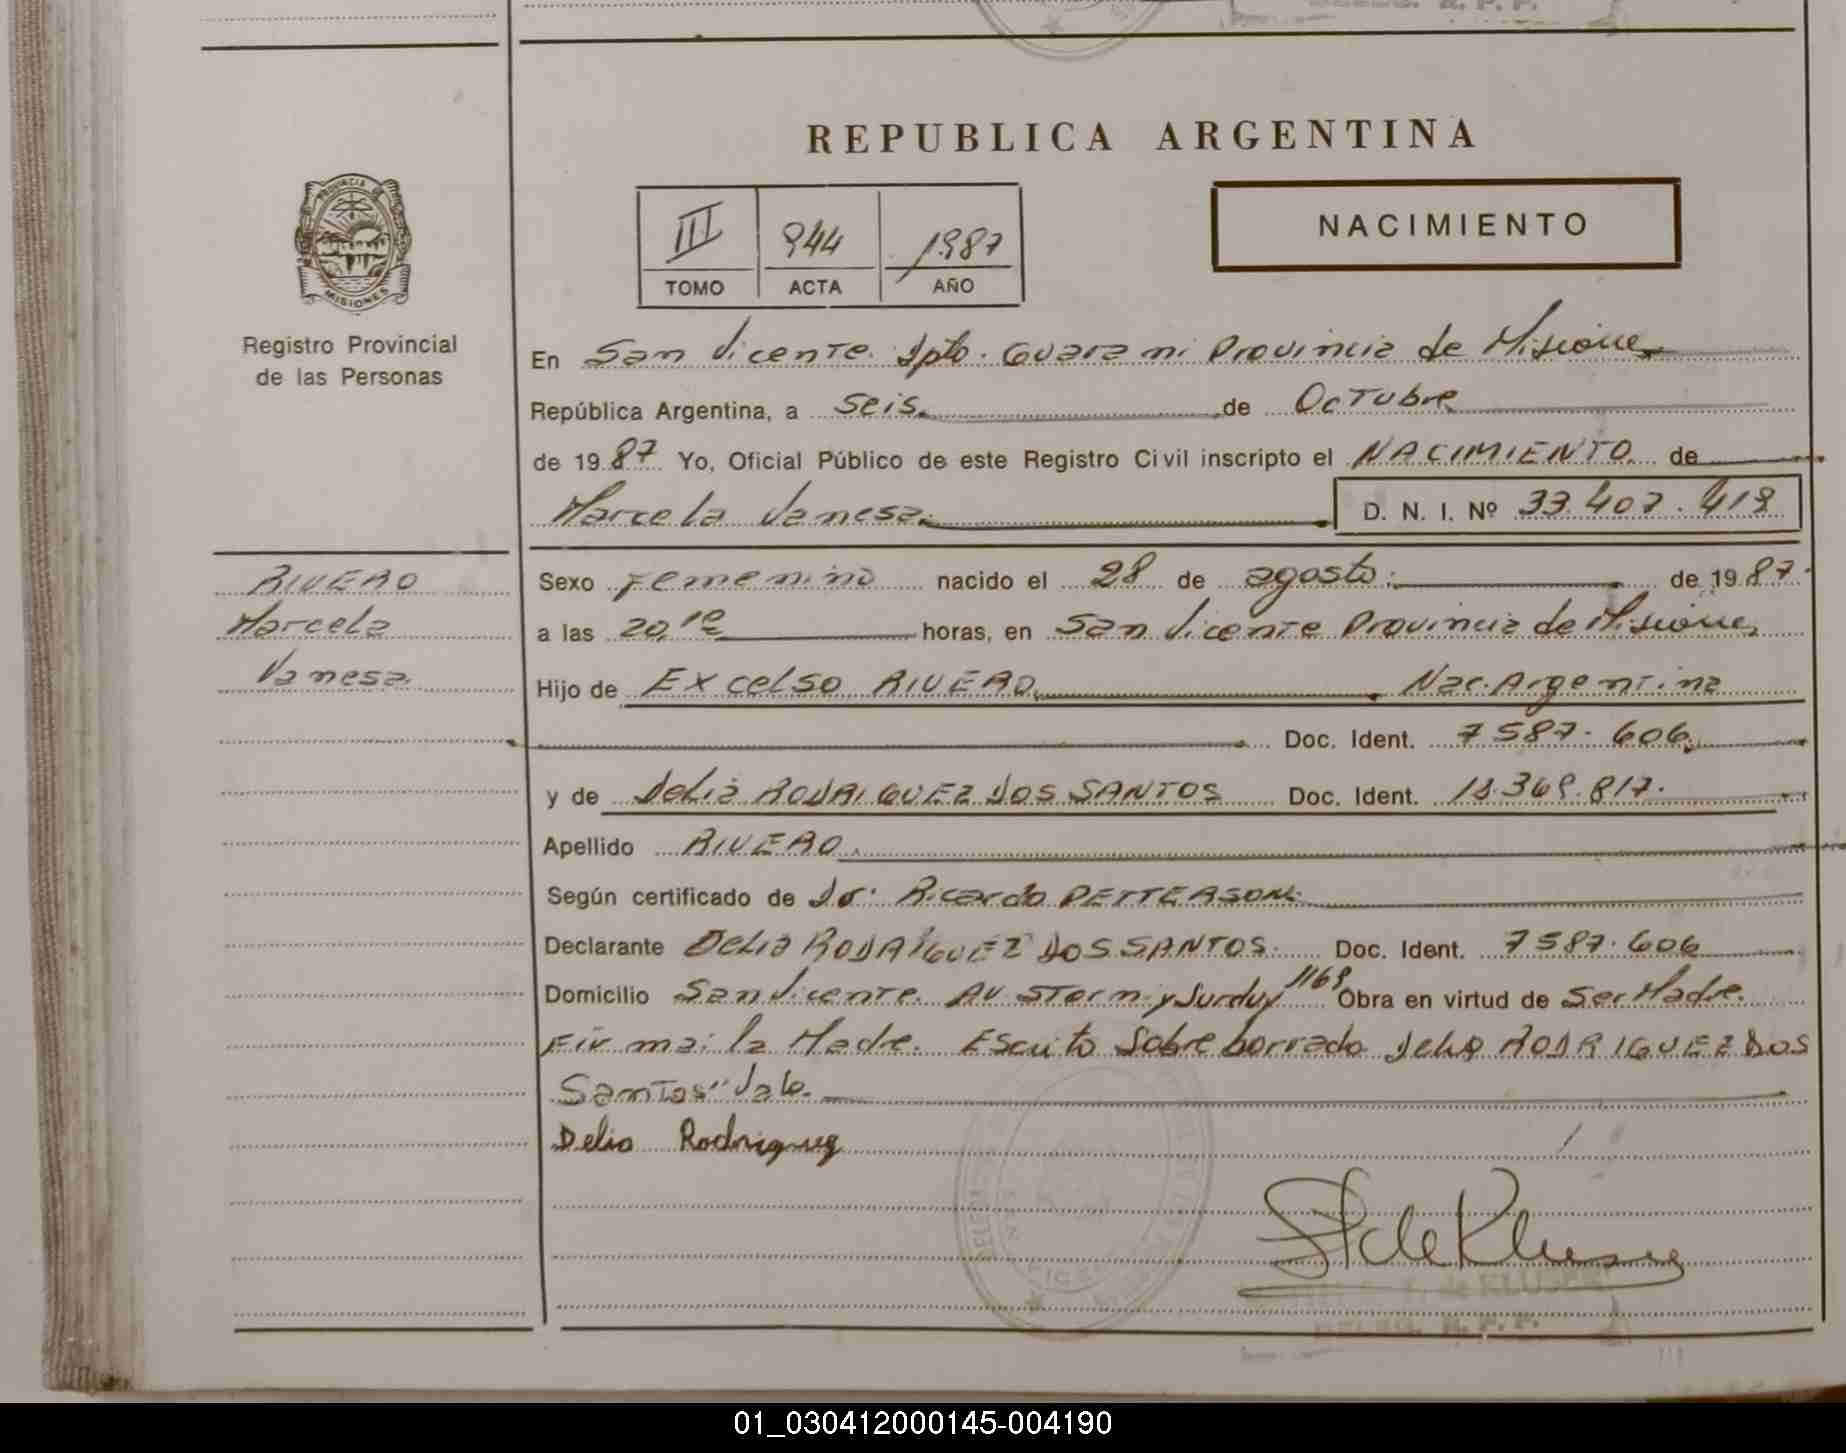 REPUBLICA ARGENTINA
III 944 1987
TOMO ACTA AÑO
NACIMIENTO
PROVINCIA DE MISIONES
Registro Provincial
de las Personas
En San Vicente. Dpto. Guarani Provincia de Misiones
República Argentina, a seis. de Octubre
de 1987 Yo, Oficial Público de este Registro Civil inscripto el NACIMIENTO de
Marcela Vanesa. D. N. I. Nº 33.407.418
RIVERO
Marcela
Vanesa.
Sexo Femenino nacido el 28 de agosto. de 1987.
a las 20,10 horas, en San Vicente Provincia de Misiones
Hijo de Excelso RIVERO. Nac. Argentina
Doc. Ident. 7587.606.
y de Delia RODRIGUEZ DOS SANTOS Doc. Ident. 18.369.817.
Apellido RIVERO.
Según certificado de Dr. Ricardo PETTERSON.
Declarante Delia RODRIGUEZ DOS SANTOS. Doc. Ident. 7587.606
Domicilio San Vicente. AV Stern y Surduy 1169 Obra en virtud de Ser Madre.
Firma: la Madre. Escrito Sobre borrado Delia RODRIGUEZ DOS
Santos" Vale.
Delia Rodriguez
de KLUSENER
R. P. P.
01_030412000145-004190